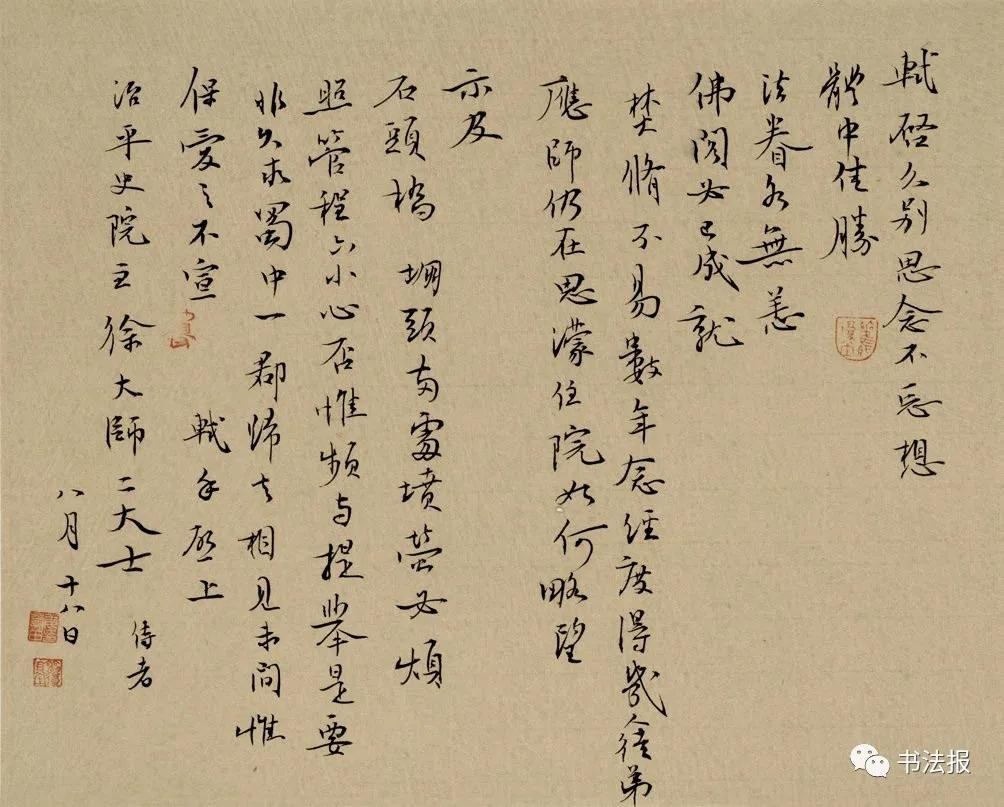 軾啓久別思念不忘想
體中佳勝
法眷各無恙
佛閣必已成就
焚脩不易數年念經度得幾人徒弟
應師仍在思濛住院如何略望
示及
石頭橋堋頭兩處墳塋必煩
照管程六小心否惟頻与提舉是要
非久求蜀中一郡歸去相見未間惟
保愛之不宣 軾手啓上
治平史院主徐大師二大士 侍者
八月十八日
书法报